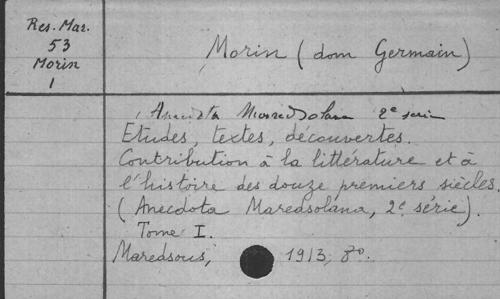 Res. Mar.
53
Morin
1
Morin (dom Germain)
Anecdota Maredsolana 2e serie
Etudes, textes, découvertes.
Contribution à la littérature et à
l'histoire des douze premiers siècles.
(Anecdota Maredsolana, 2e série).
Tome I.
Maredsous, 1913, 8o.